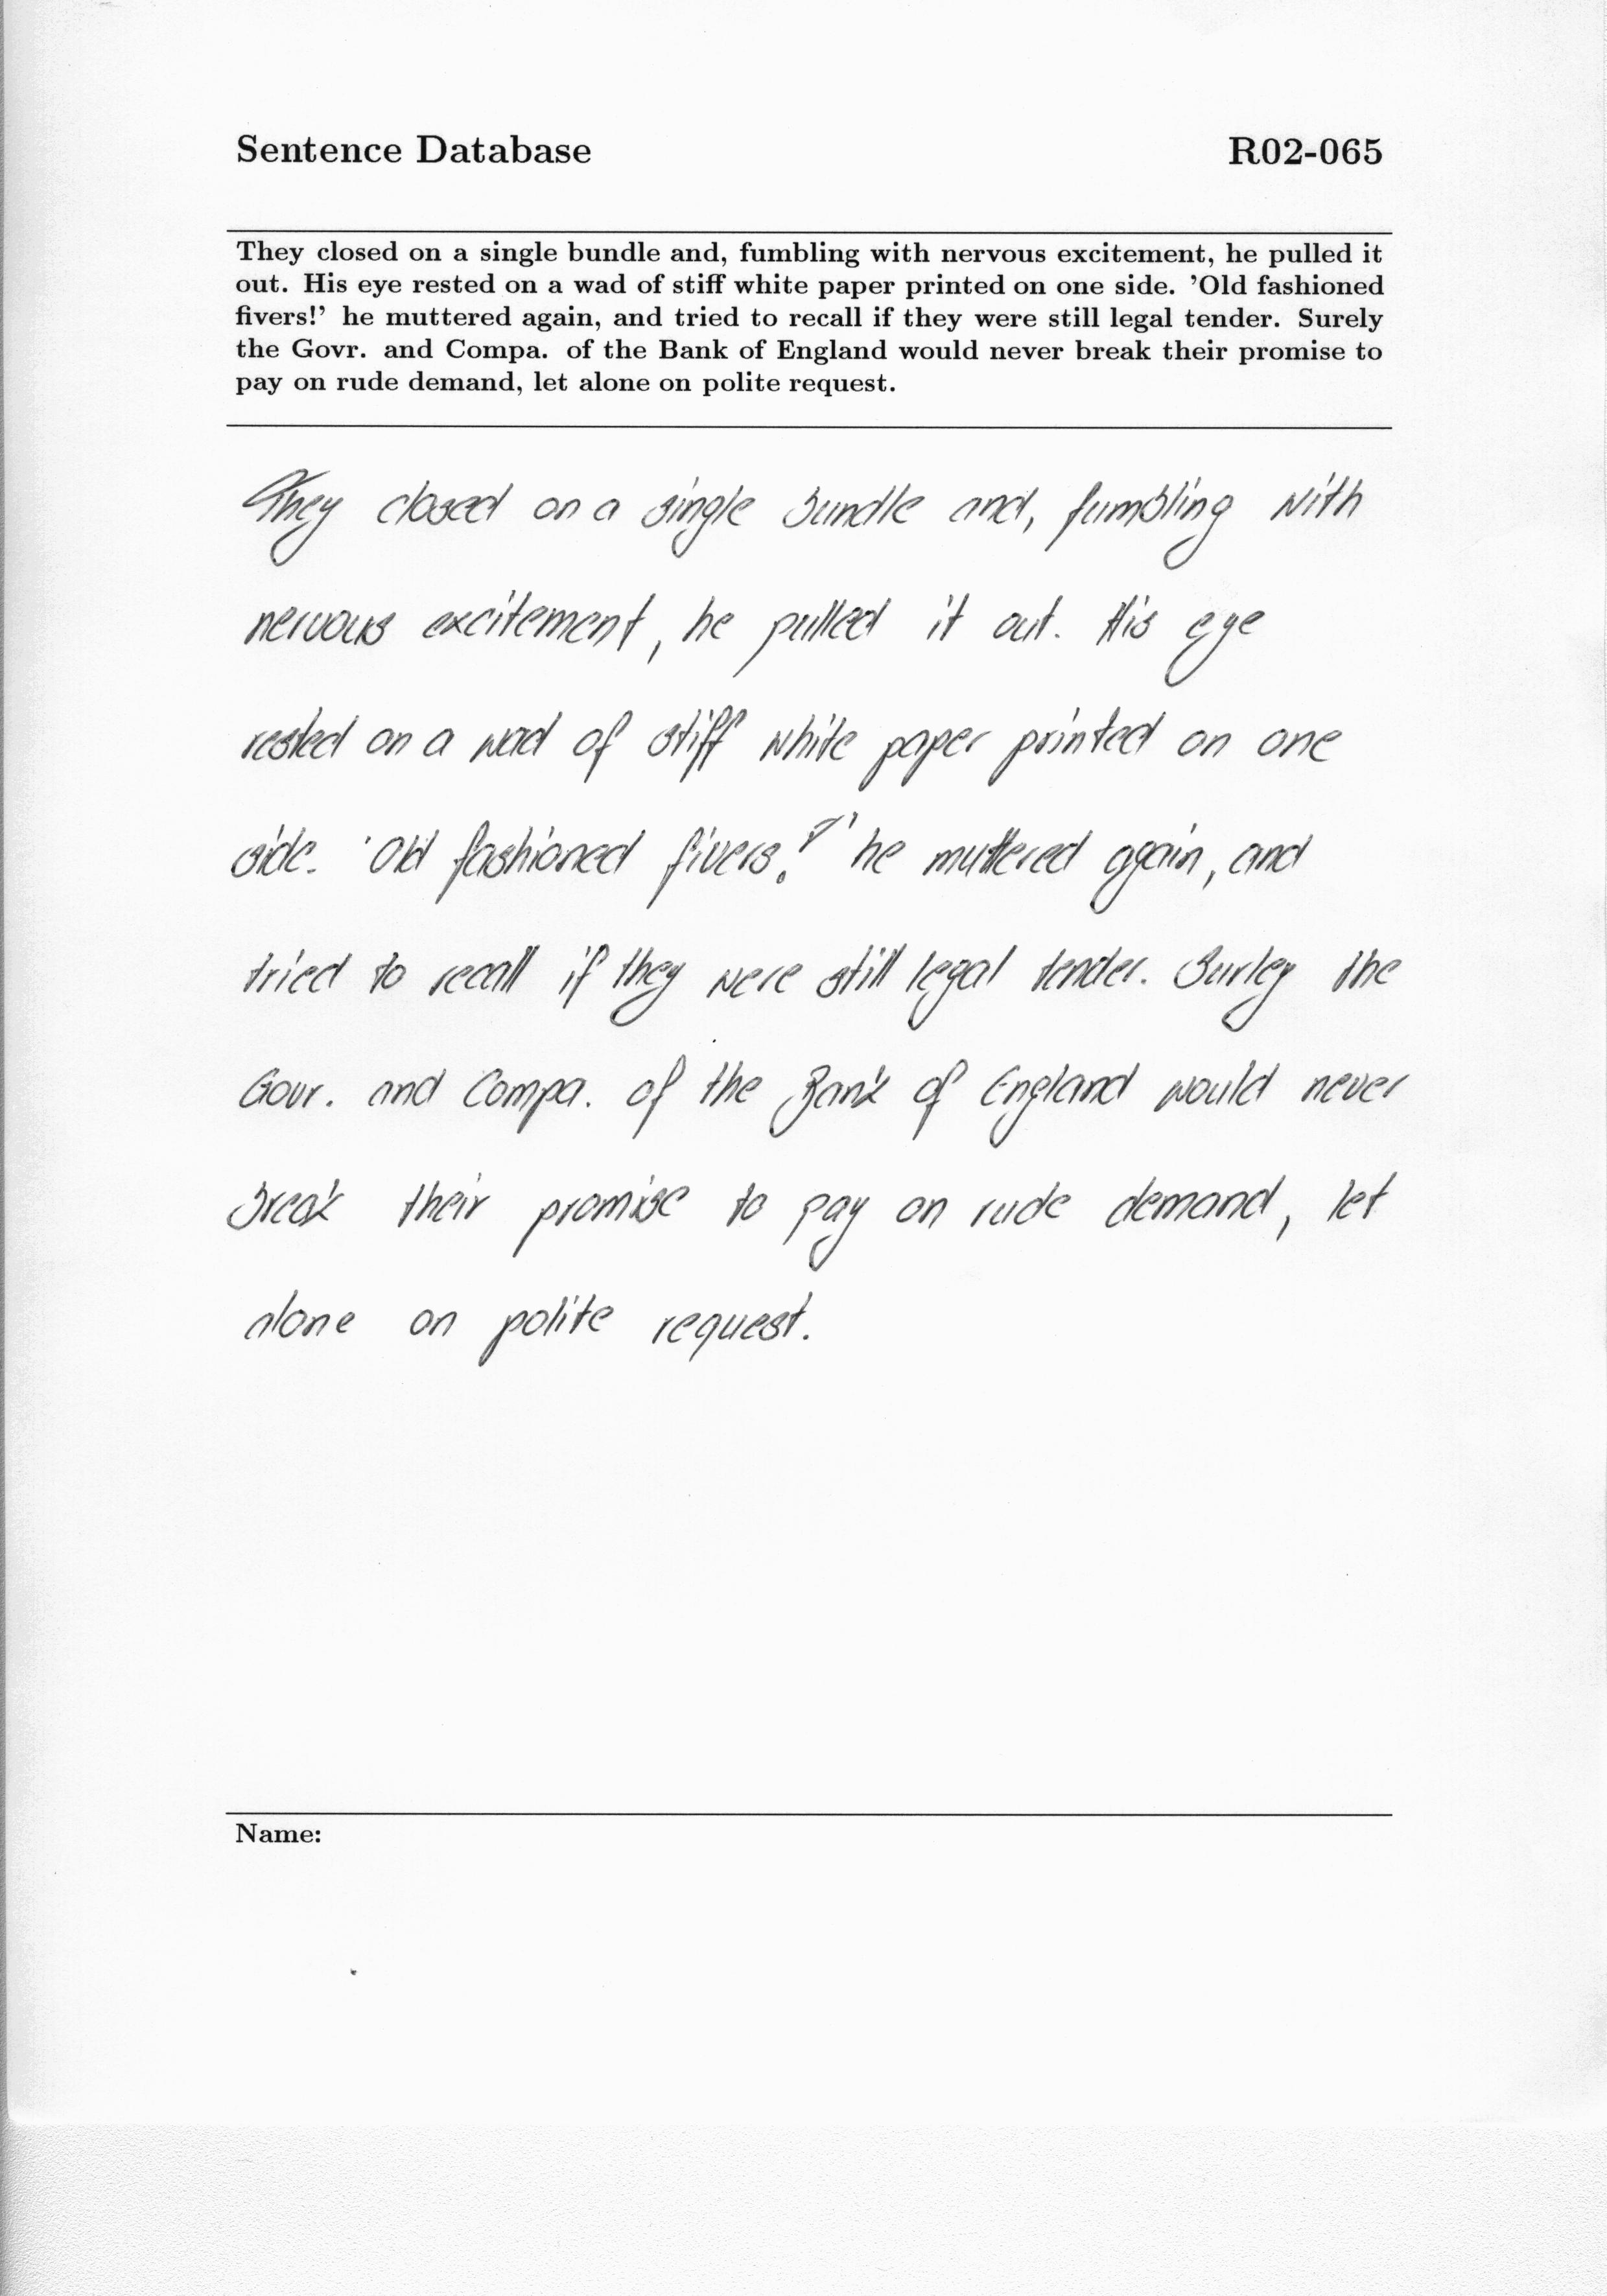 Sentence Database R02-065
They closed on a single bundle and, fumbling with nervous excitement, he pulled it
out. His eye rested on a wad of stiff white paper printed on one side. 'Old fashioned
fivers!' he muttered again, and tried to recall if they were still legal tender. Surely
the Govr. and Compa. of the Bank of England would never break their promise to
pay on rude demand, let alone on polite request.
They closed on a single bundle and, fumbling with
nervous excitement, he pulled it out. His eye
rested on a wad of stiff white paper printed on one
side. 'Old fashioned fivers!' he muttered again, and
tried to recall if they were still legal tender. Surley the
Govr. and Compa. of the Bank of England would never
break their promise to pay on rude demand, let
alone on polite request.
Name: